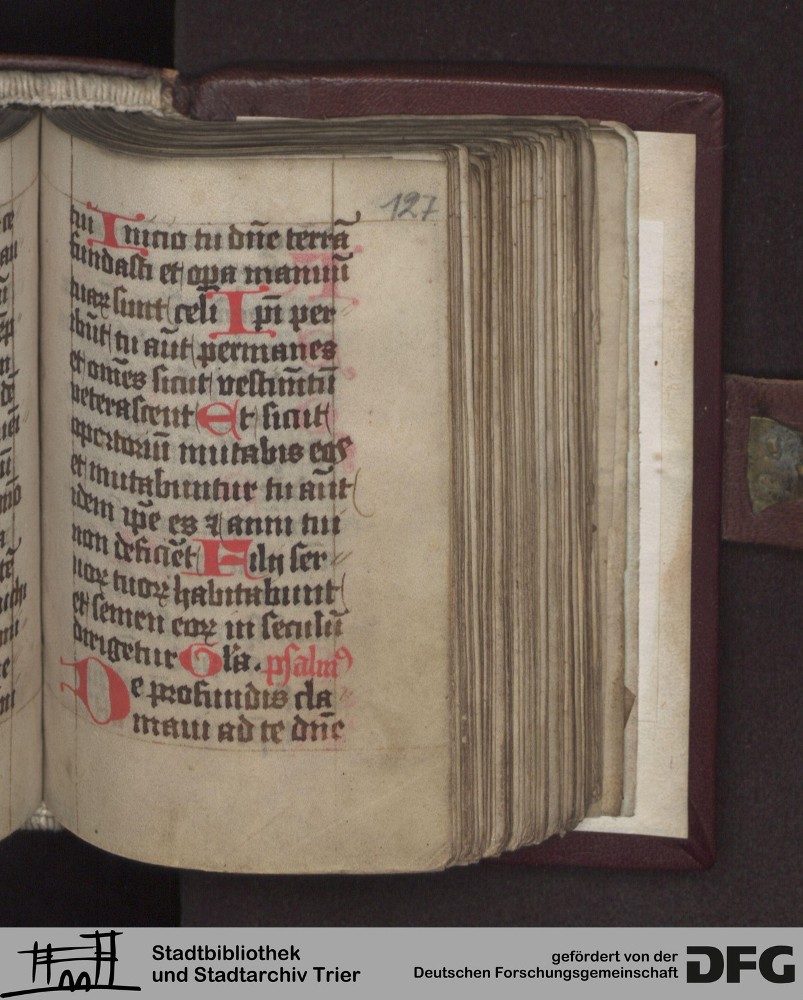 127
tui Inicio tu dn̄e terrā
fundasti et oꝑa manuū
tuaꝝ sunt celi Ip̄i per
ibūt tu aūt permanes
et om̄es sicut vestim̄tū
veterascent Et sicut
opertoriū mutabis eos
et mutabuntur tu aūt
idem ip̄e es ⁊ anni tui
non deficiēt Filij ser⸗
uoꝝ tuoꝝ habitabunt
et semen eoꝝ in seculū
dirigetur Gl̄a. psalmꝰ
De profundis cla
maui ad te dn̄e
Stadtbibliothek
und Stadtarchiv Trier
gefördert von der
Deutschen Forschungsgemeinschaft
DFG